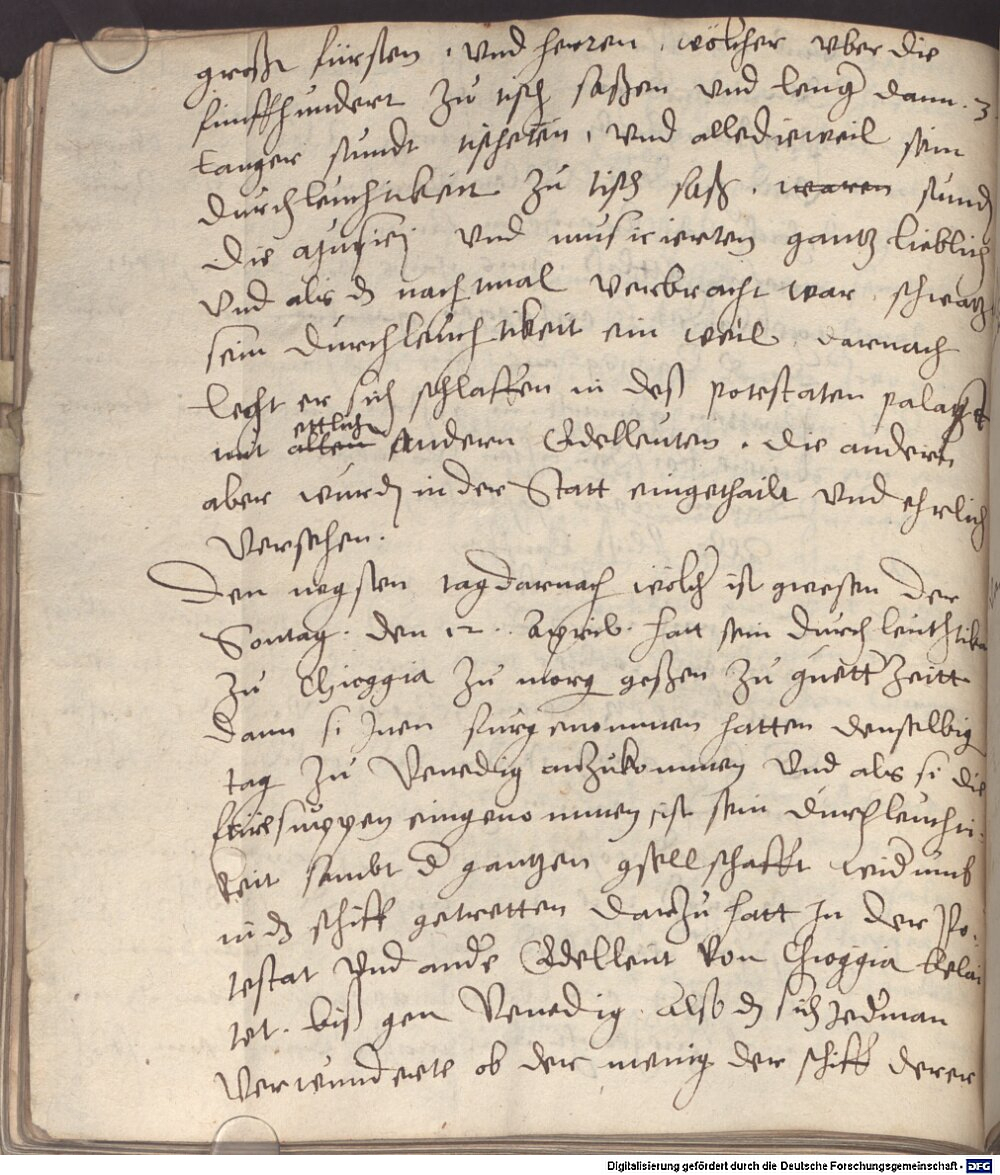 große fürsten, vnd herren, wölcher vber die
fünffhundert zu tisch saßen vnd leng dann 3
langer stundt tischeten, vnd alledieweil sein
durchleuchtikeit zu tisch saß, waren stund
die vnd musicierten gantz lieblich
vnd als dz nachtmal verbracht war, schwatzt
sein durchleuchtikeit ein weil, darnach
legt er sich schlaffen in deß potestaten palatzst
ettlich
mit allen Andern Edelleuten. die andern
aber wurden in der Statt eingethailt vnd ehrlich
versehen.
Den negsten tag darnach wölcher ist gwesen der
Sontag. den 12. Aprilis. hatt sein durchleuchtikeit
zu Chioggia zu morg geßen zu guetter Zeitt
dann si Jnen fürgenommen hatten denselbig
tag zu Venedig anzukommen vnd als si die
suppen eingenommen, ist sein durchleuchti-
keit sambt der gantzen gsellschafft widrumb
in dz schiff getretten darzu hatt Jn der Po-
testat vnd andre Edelleut von Chioggia belai
tet. biß gen Venedig. Also dz sich Jederman
verwunderte ob der menig der schiff derer
Digitalisierung gefördert durch die Deutsche Forschungsgemeinschaft - DFG